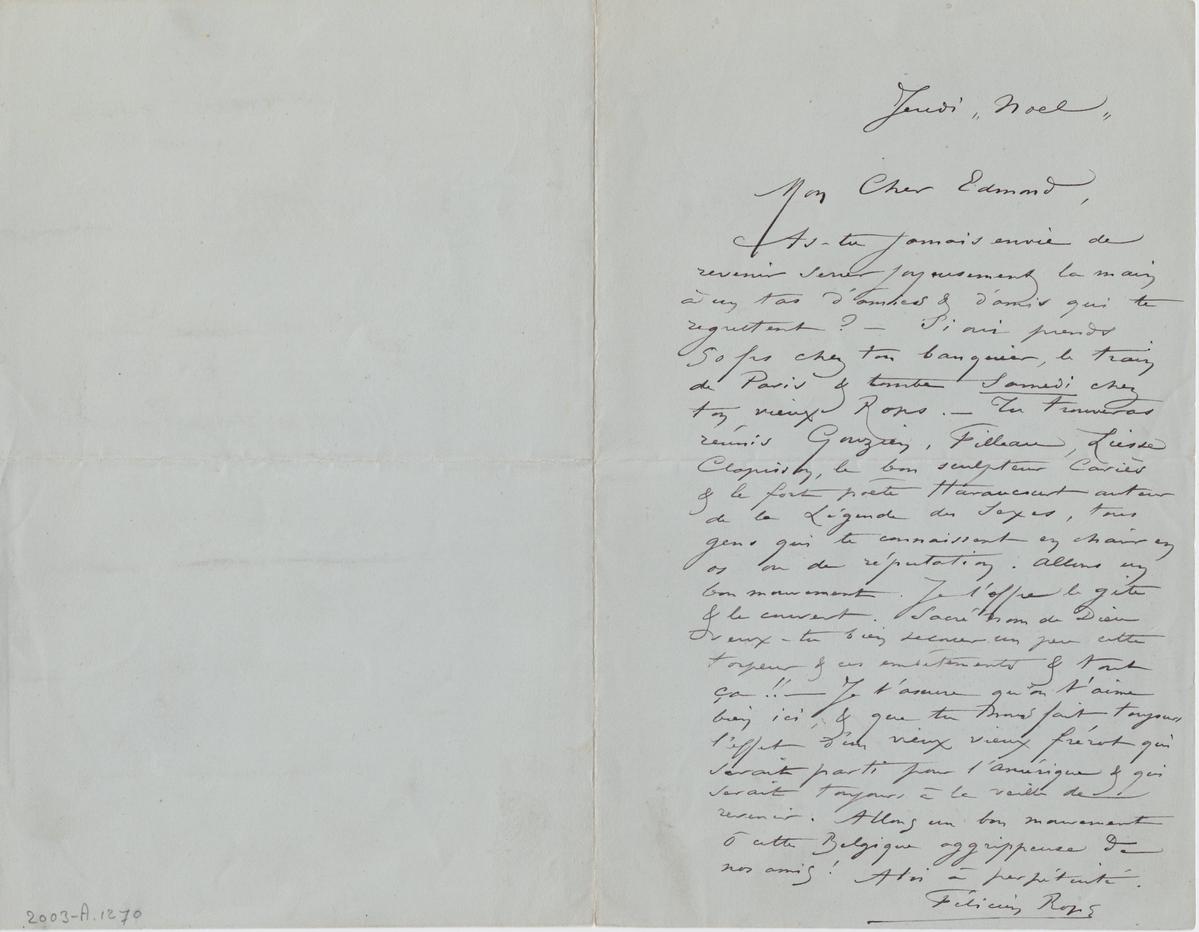 Jeudi „ Noel „
Mon Cher Edmond,
As-tu jamais envie de
revenir serrer joyeusement la main
à un tas d'amies & d'amis qui te
regrettent ? — Si oui prends
50 frs chez ton banquier, le train
de Paris & tombe Samedi chez
ton vieux Rops. — Tu trouveras
réunis Gouzien, Filleau, Liesse
Clapisson, le bon sculpteur Cariès
& le fort poète Haraucourt auteur
de la Légende des Sexes, tous
gens qui te connaissent en chair en
os ou de réputation. Allons un
bon mouvement. Je t'offre le gîte
& le couvert. Sacré nom de Dieu
veux-tu bien secouer un peu cette
torpeur & ces embêtements & tout
ça !! — Je t'assure qu'on t'aime
bien ici, & que tu nous fait toujours
l'effet d'un vieux vieux frérot qui
serait parti pour l'Amérique & qui
serait toujours à la veille de
revenir. Allons un bon mouvement
Ô cette Belgique aggrippeuse de
nos amis ! A toi à perpétuité.
Félicien Rops
2003-A.1270